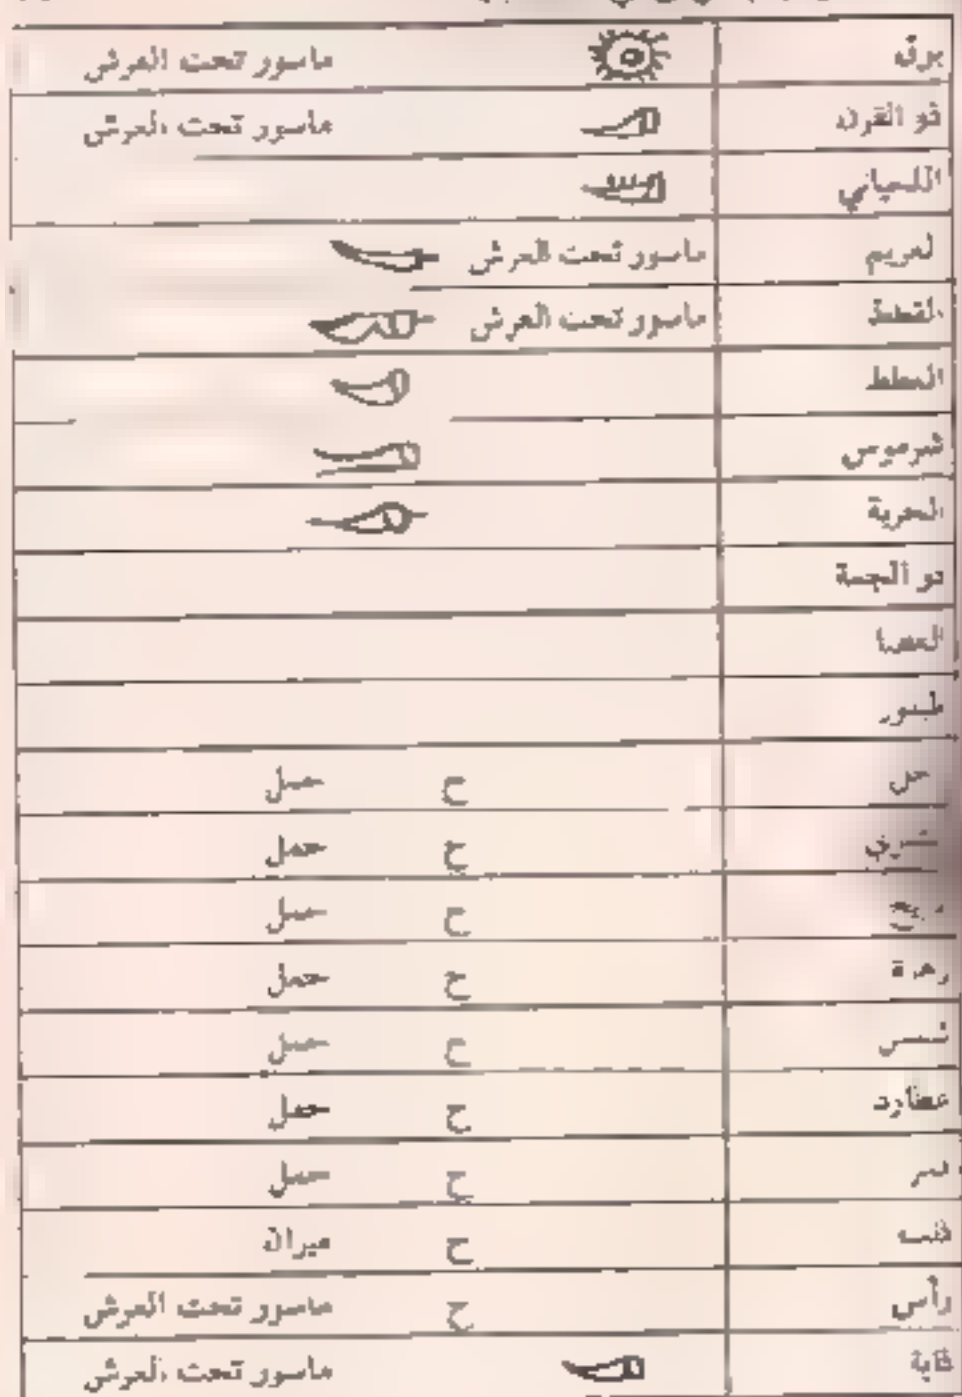 برق ماسور تحت العرش
ذو القرن ماسور تحت العرش
اللحياني
الغريم ماسور تحت العرش
القطط ماسور تحت العرش
شرموس
الحربة
ذو الجمة
العصا
طيبور
ح حمل
ح حمل
مريخ ح حمل
زهرة ح حمل
شمس ح حمل
عطارد ح حمل
قمر ح حمل
ح ميزان
رأس ح ماسور تحت العرش
ماسور تحت العرش